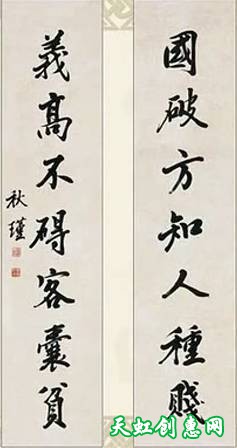 國破方知人種賤
義高不碍客囊貧
秋瑾
天虹创惠网